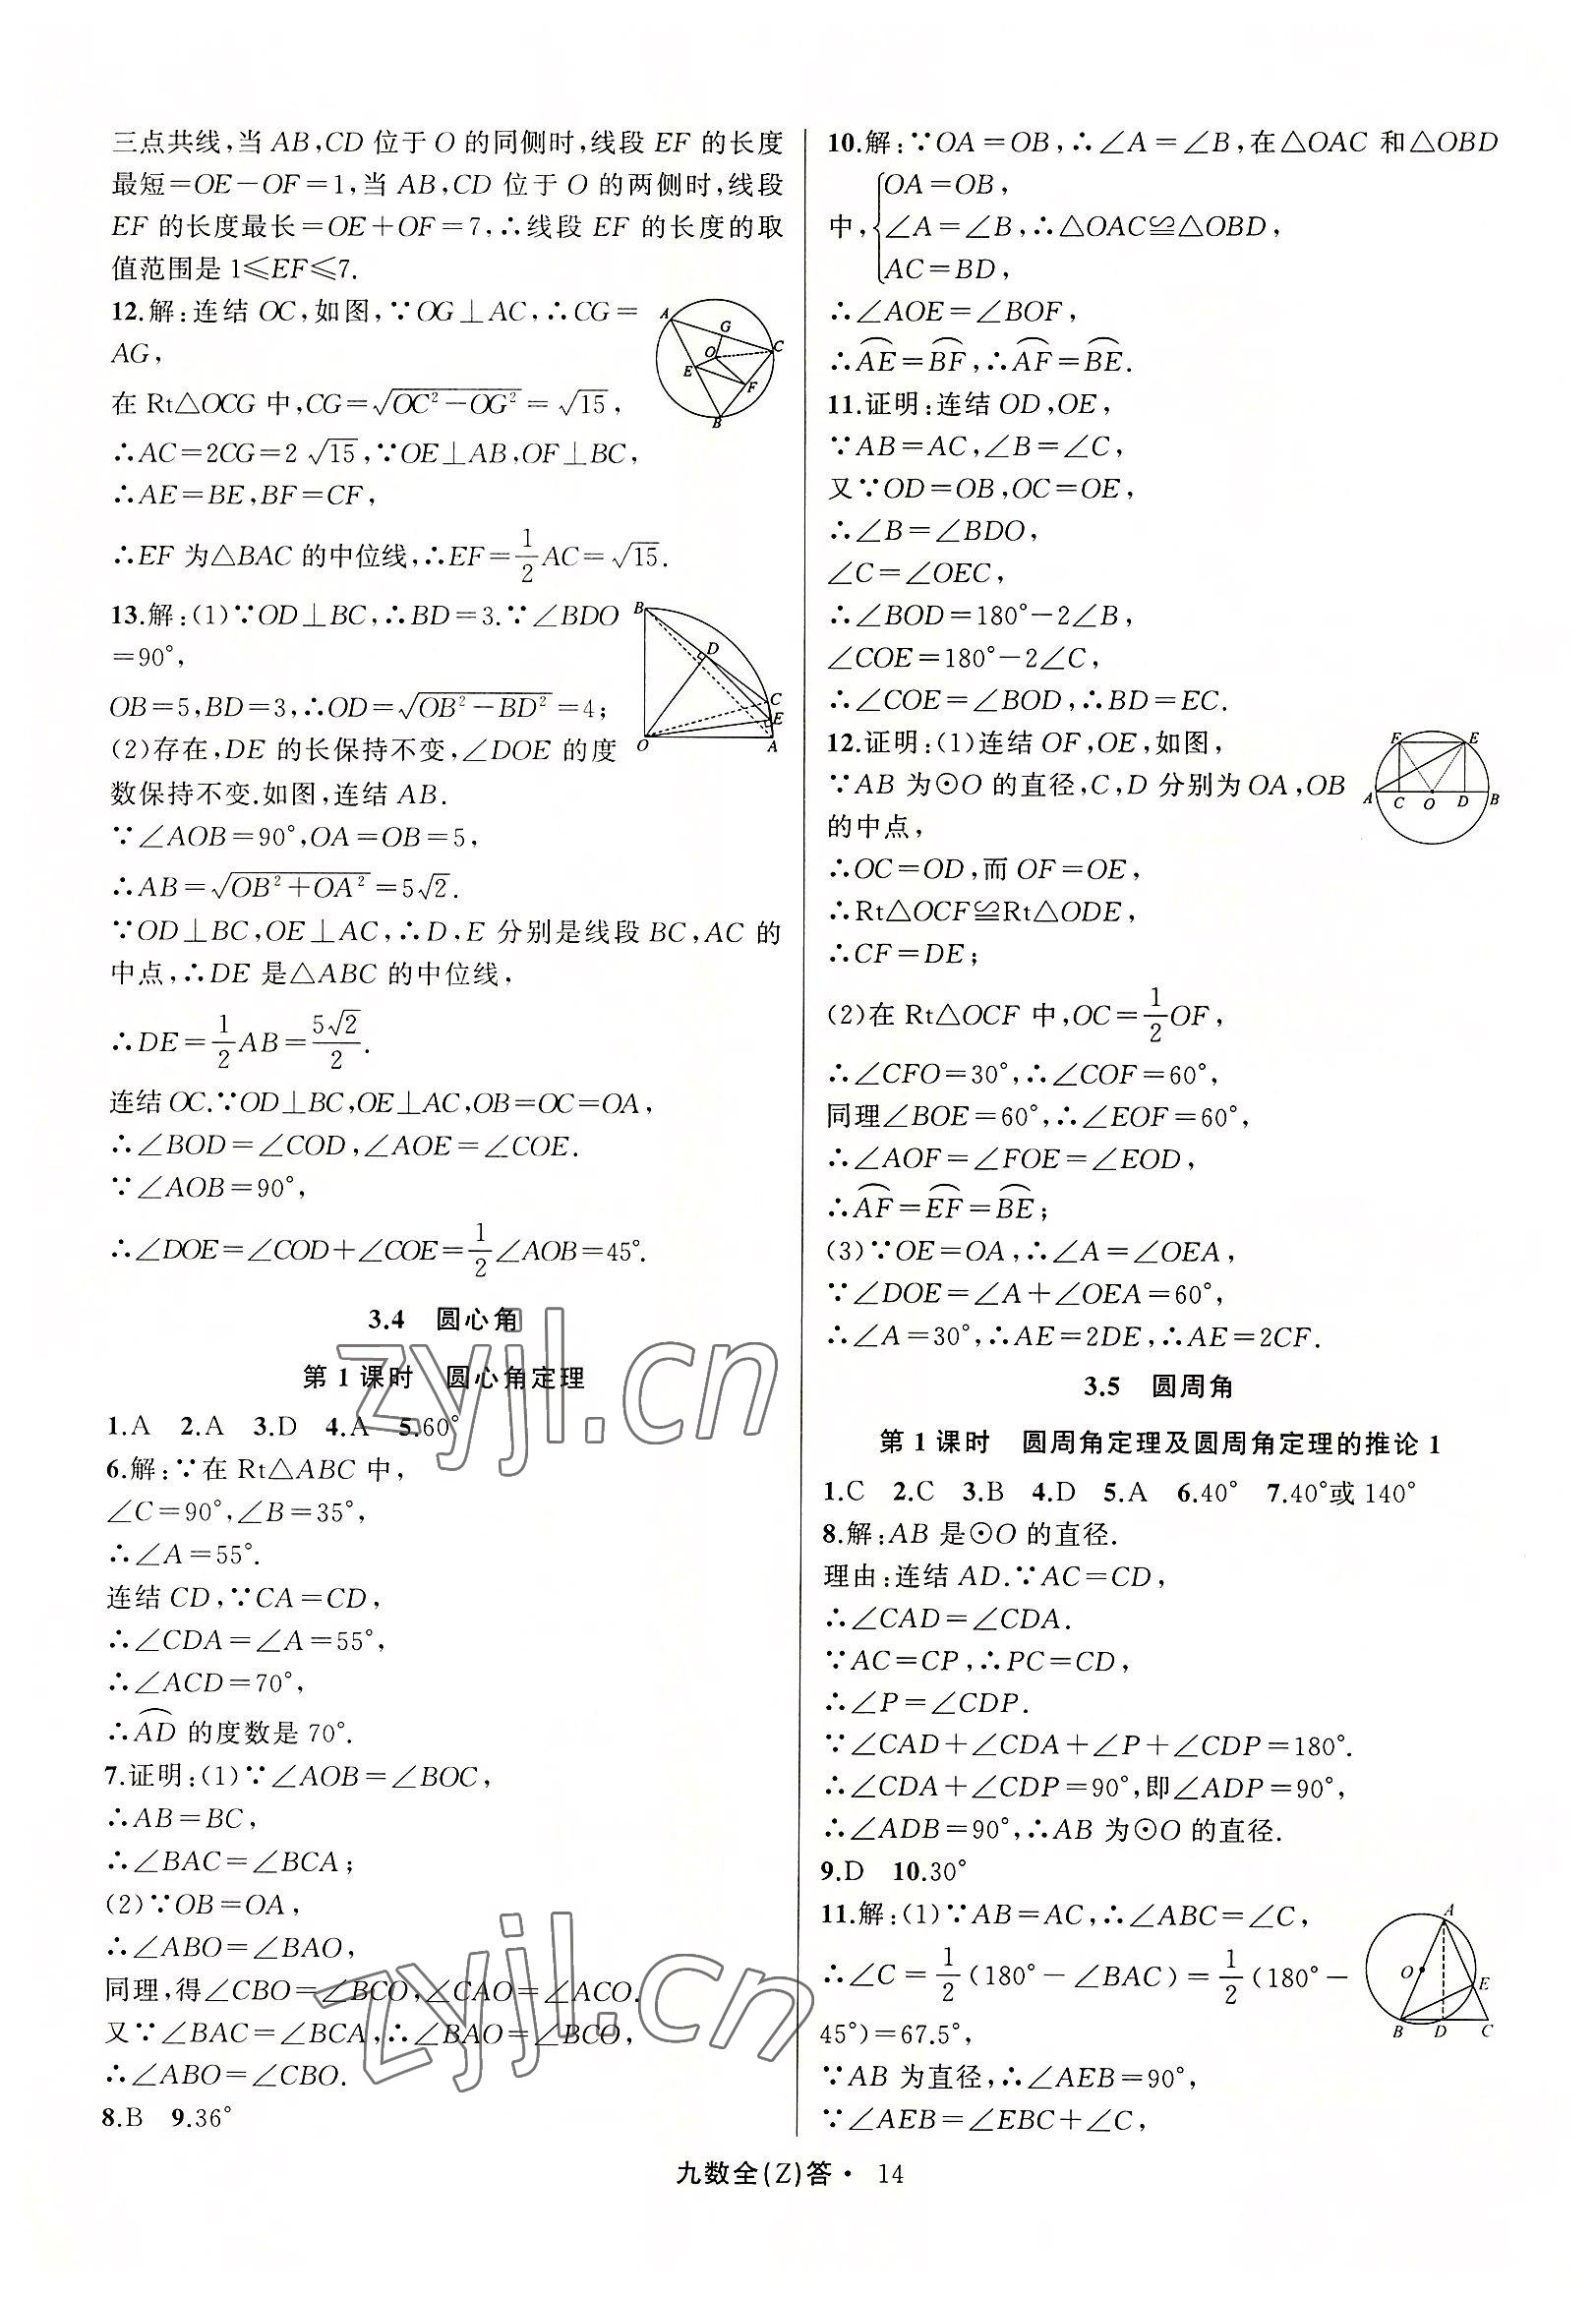 三点共线,当 AB,CD 位于 O 的同侧时,线段 EF 的长度
最短=OE-OF=1,当 AB,CD 位于 O 的两侧时,线段
EF 的长度最长=OE+OF=7,∴线段 EF 的长度的取
值范围是 1≤EF≤7.
12.解:连结 OC,如图,∵OG⊥AC,∴CG=
AG,
在 Rt△OCG 中,CG=√(OC²-OG²)=√15,
∴AC=2CG=2√15,∵OE⊥AB,OF⊥BC,
∴AE=BE,BF=CF,
∴EF 为△BAC 的中位线,∴EF=1/2AC=√15.
A
G
C
O
E
F
B
13.解:(1)∵OD⊥BC,∴BD=3.∵∠BDO
=90°,
OB=5,BD=3,∴OD=√(OB²-BD²)=4;
(2)存在,DE 的长保持不变,∠DOE 的度
数保持不变.如图,连结 AB.
B
D
C
E
O
A
∵∠AOB=90°,OA=OB=5,
∴AB=√(OB²+OA²)=5√2.
∵OD⊥BC,OE⊥AC,∴D,E 分别是线段 BC,AC 的
中点,∴DE 是△ABC 的中位线,
∴DE=1/2AB=5√2/2.
连结 OC.∵OD⊥BC,OE⊥AC,OB=OC=OA,
∴∠BOD=∠COD,∠AOE=∠COE.
∵∠AOB=90°,
∴∠DOE=∠COD+∠COE=1/2∠AOB=45°.
3.4 圆心角
第 1 课时 圆心角定理
1.A 2.A 3.D 4.A 5.60°
6.解:∵在 Rt△ABC 中,
∠C=90°,∠B=35°,
∴∠A=55°.
连结 CD,∵CA=CD,
∴∠CDA=∠A=55°,
∴∠ACD=70°,
∴⌒AD 的度数是 70°.
7.证明:(1)∵∠AOB=∠BOC,
∴AB=BC,
∴∠BAC=∠BCA;
(2)∵OB=OA,
∴∠ABO=∠BAO,
同理,得∠CBO=∠BCO,∠CAO=∠ACO.
又∵∠BAC=∠BCA,∴∠BAO=∠BCO,
∴∠ABO=∠CBO.
8.B 9.36°
10.解:∵OA=OB,∴∠A=∠B,在△OAC 和△OBD
中,{OA=OB,
∠A=∠B,∴△OAC≌△OBD,
AC=BD,
∴∠AOE=∠BOF,
∴⌒AE=⌒BF,∴⌒AF=⌒BE.
11.证明:连结 OD,OE,
∵AB=AC,∠B=∠C,
又∵OD=OB,OC=OE,
∴∠B=∠BDO,
∠C=∠OEC,
∴∠BOD=180°-2∠B,
∠COE=180°-2∠C,
∴∠COE=∠BOD,∴BD=EC.
12.证明:(1)连结 OF,OE,如图,
∵AB 为⊙O 的直径,C,D 分别为 OA,OB
的中点,
F
E
A
C
O
D
B
∴OC=OD,而 OF=OE,
∴Rt△OCF≌Rt△ODE,
∴CF=DE;
(2)在 Rt△OCF 中,OC=1/2OF,
∴∠CFO=30°,∴∠COF=60°,
同理∠BOE=60°,∴∠EOF=60°,
∴∠AOF=∠FOE=∠EOD,
∴⌒AF=⌒EF=⌒BE;
(3)∵OE=OA,∴∠A=∠OEA,
∵∠DOE=∠A+∠OEA=60°,
∴∠A=30°,∴AE=2DE,∴AE=2CF.
3.5 圆周角
第 1 课时 圆周角定理及圆周角定理的推论 1
1.C 2.C 3.B 4.D 5.A 6.40° 7.40°或 140°
8.解:AB 是⊙O 的直径.
理由:连结 AD.∵AC=CD,
∴∠CAD=∠CDA.
∵AC=CP,∴PC=CD,
∴∠P=∠CDP.
∵∠CAD+∠CDA+∠P+∠CDP=180°.
∴∠CDA+∠CDP=90°,即∠ADP=90°,
∴∠ADB=90°,∴AB 为⊙O 的直径.
9.D 10.30°
11.解:(1)∵AB=AC,∴∠ABC=∠C,
∴∠C=1/2(180°-∠BAC)=1/2(180°-
45°)=67.5°,
A
O
E
B
D
C
∵AB 为直径,∴∠AEB=90°,
∵∠AEB=∠EBC+∠C,
九数全(Z)答· 14
zyjl.cn
zyjl.cn